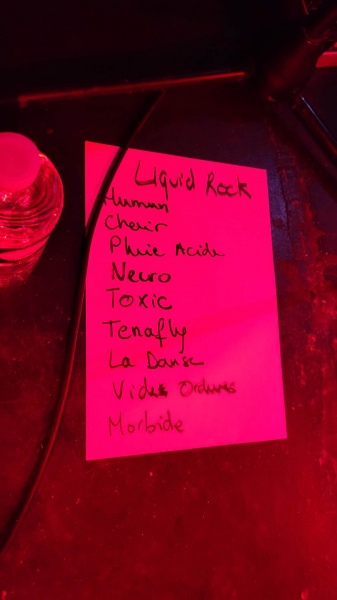 Liquid Rock
Human
Chair
Pluie Acide
Necro
Toxic
Tenafly
La Danse
Vide Ordures
Morbide